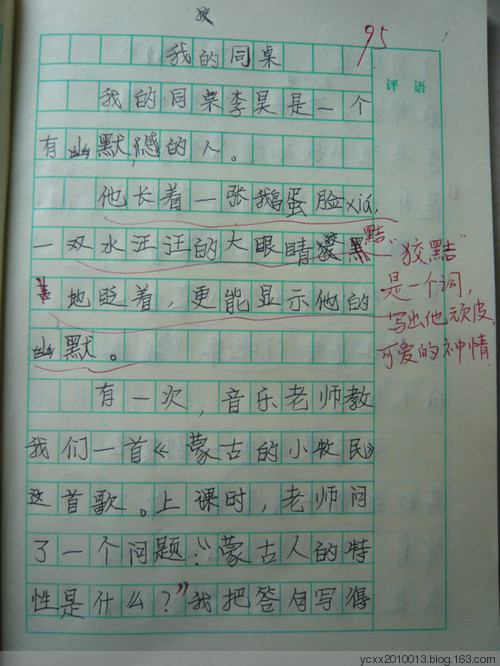 我的同桌
95
评语
我的同桌李昊是一个
有幽默感的人。
他长着一张鹅蛋脸xià,
一双水汪汪的大眼睛
黠
地眨着,更能显示他的
幽默。
"狡黠"
是一个词,
写出他顽皮
可爱的神情
有一次,音乐老师教
我们一首《蒙古的小牧民》
这首歌。上课时,老师问
了一个问题:“蒙古人的特
性是什么?”我把答句写得
ycxx2010013.blog.163.com